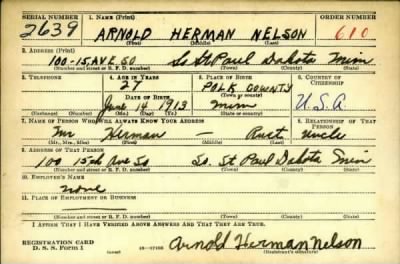 SERIAL NUMBER 1. NAME (Print) ORDER NUMBER
2639 ARNOLD HERMAN NELSON 610
(First) (Middle) (Last)
2. ADDRESS (Print)
100-15 AVE SO So St Paul Dakota Minn
(Number and street or R. F. D. number) (Town) (County) (State)
3. TELEPHONE 4. AGE IN YEARS 5. PLACE OF BIRTH 6. COUNTRY OF CITIZENSHIP
27 POLK COUNTY
DATE OF BIRTH (Town or county)
June 14 1913 Minn U.S.A
(Exchange) (Number) (Mo.) (Day) (Yr.) (State or country)
7. NAME OF PERSON WHO WILL ALWAYS KNOW YOUR ADDRESS 8. RELATIONSHIP OF THAT PERSON
Mr Herman — Uncle
(Mr., Mrs., Miss) (First) (Middle) (Last)
9. ADDRESS OF THAT PERSON
100 15th Ave So So. St Paul Dakota Minn
(Number and street or R. F. D. number) (Town) (County) (State)
10. EMPLOYER'S NAME
None
11. PLACE OF EMPLOYMENT OR BUSINESS
(Number and street or R. F. D. number) (Town) (County) (State)
I AFFIRM THAT I HAVE VERIFIED ABOVE ANSWERS AND THAT THEY ARE TRUE.
REGISTRATION CARD
D. S. S. Form 1 Arnold Herman Nelson